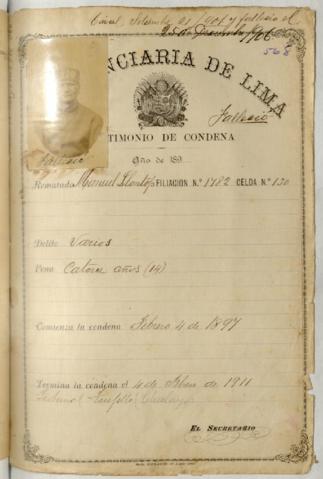 y falleció el
25 de Diciembre 1906
568
NCIARIA DE LIMA
Falleció
TIMONIO DE CONDENA
Falleció
Año de 189
Rematado Manuel FILIACIÓN N.º 1782 CELDA N.º 130
Delito Varios
Pena Catorce años (14)
Comienza la condena Febrero 4 de 1897
Termina la condena el 4 de Febro de 1911
EL SECRETARIO